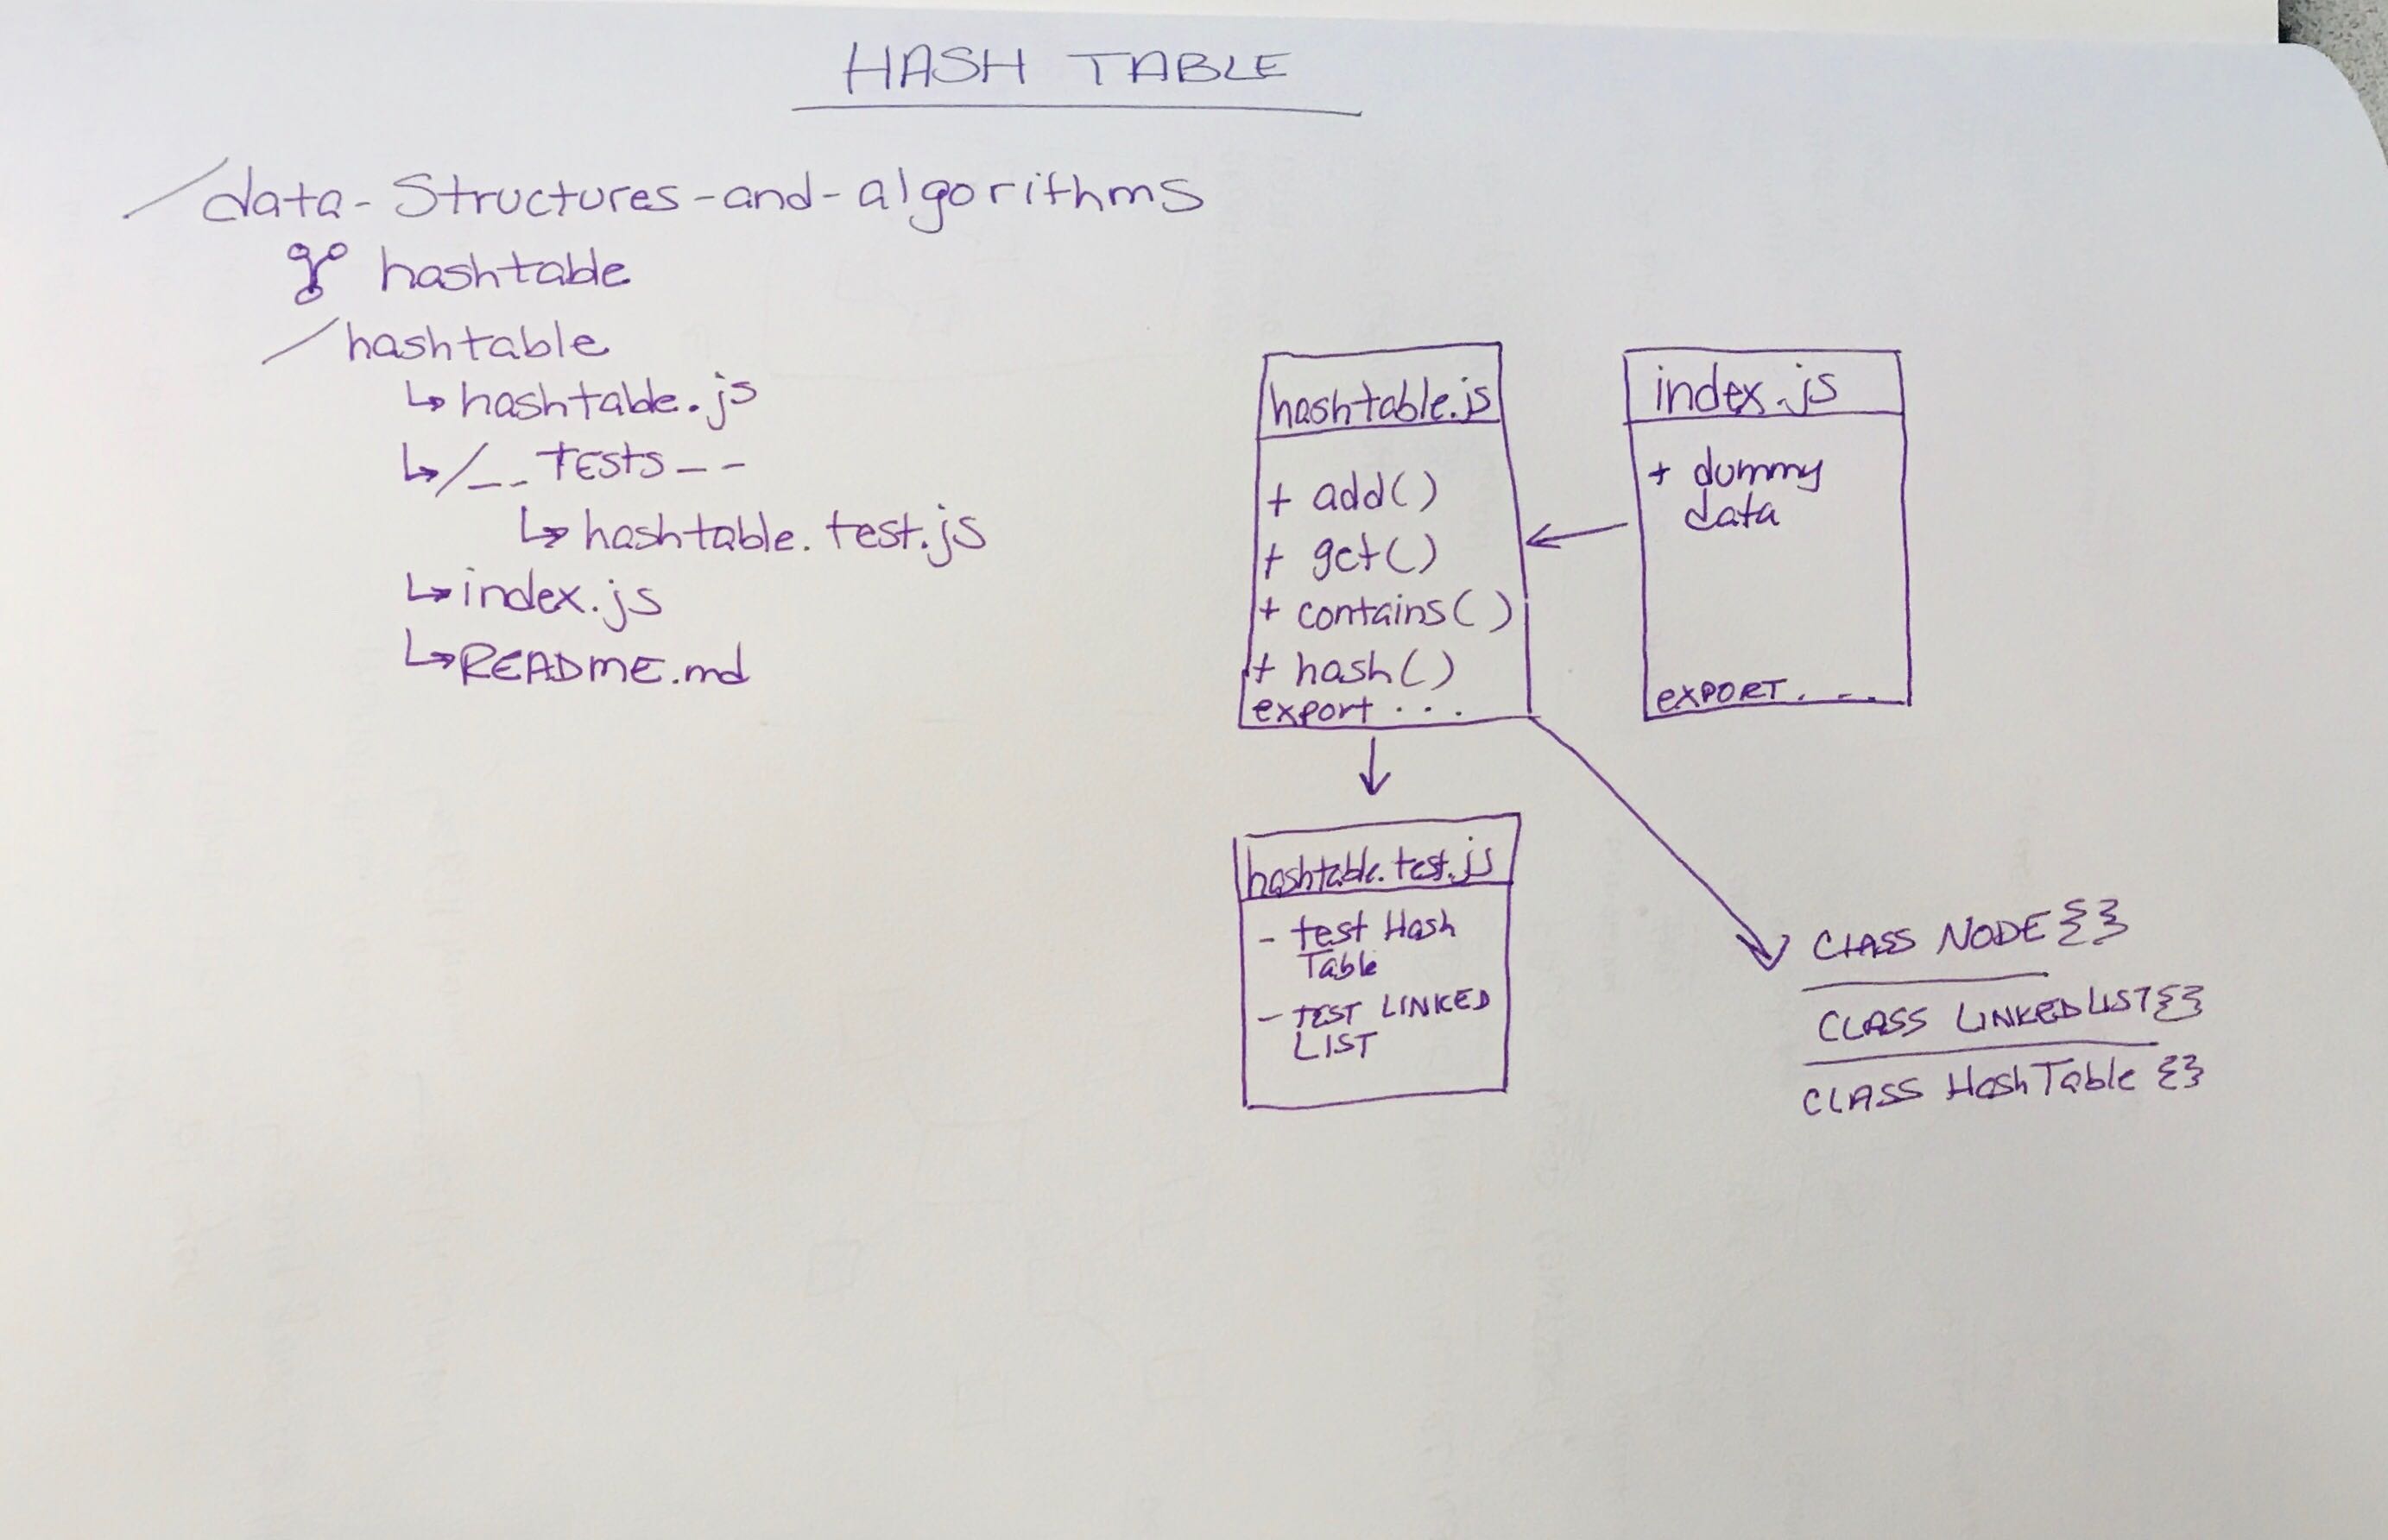 HASH TABLE
/data-Structures-and-algorithms
hashtable
/hashtable
↳ hashtable.js
↳ /__TESTS__
↳ hashtable.test.js
↳ index.js
↳ README.md
hashtable.js
+ add()
+ get()
+ contains()
+ hash()
export ...
index.js
+ dummy
data
EXPORT. __
hashtable.test.js
- test Hash
Table
- TEST LINKED
LIST
CLASS NODE {}
CLASS LINKEDLIST {}
CLASS HashTable {}